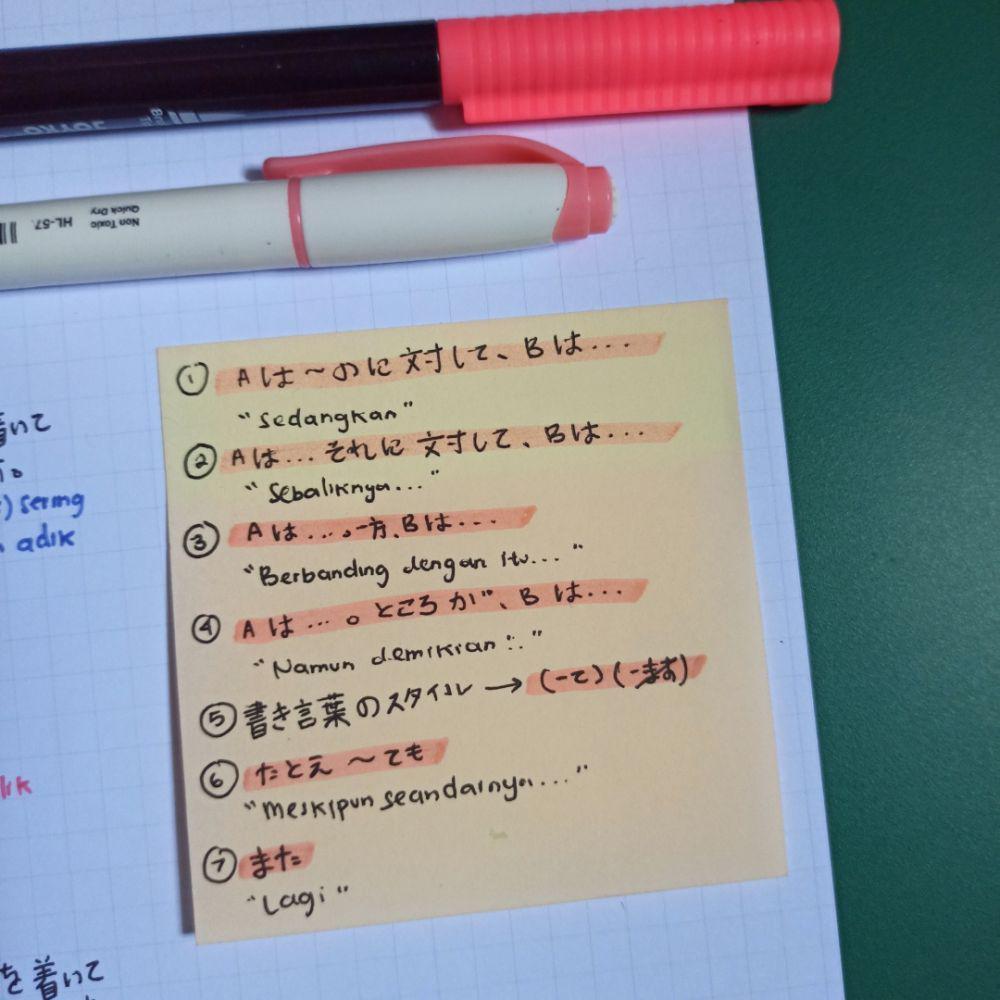 Non Toxic
Quick Dry
HL-57.
着いて
sering
adik
① Aは～のに対して、Bは...
"Sedangkan"
② Aは...それに対して、Bは...
"Sebaliknya..."
③ Aは...。一方、Bは...
"Berbanding dengan itu..."
④ Aは...。ところが、Bは...
"Namun demikian..."
⑤ 書き言葉のスタイル → (-て) (-ます)
⑥ たとえ～ても
"Meskipun seandainya..."
⑦ また
"Lagi"
を着いて